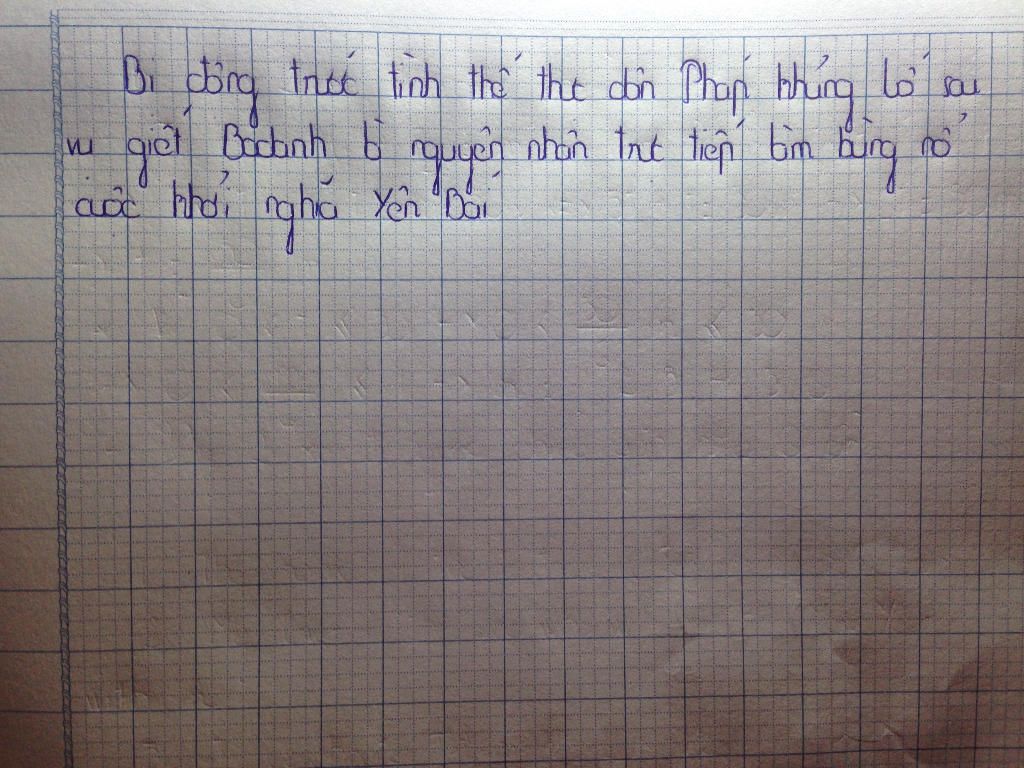 Bị động trước tình thế thực dân Pháp khủng bố sau
vụ giết Badanh là nguyên nhân trực tiếp làm bùng nổ
cuộc khởi nghĩa Yên Bái